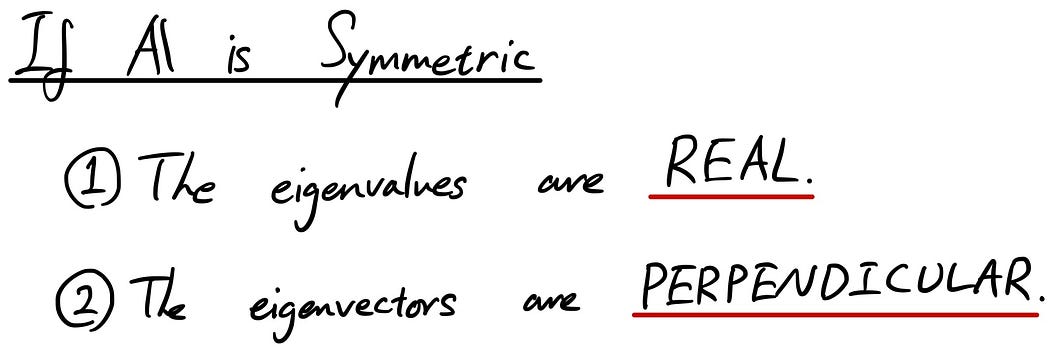 If A is Symmetric
① The eigenvalues are REAL.
② The eigenvectors are PERPENDICULAR.